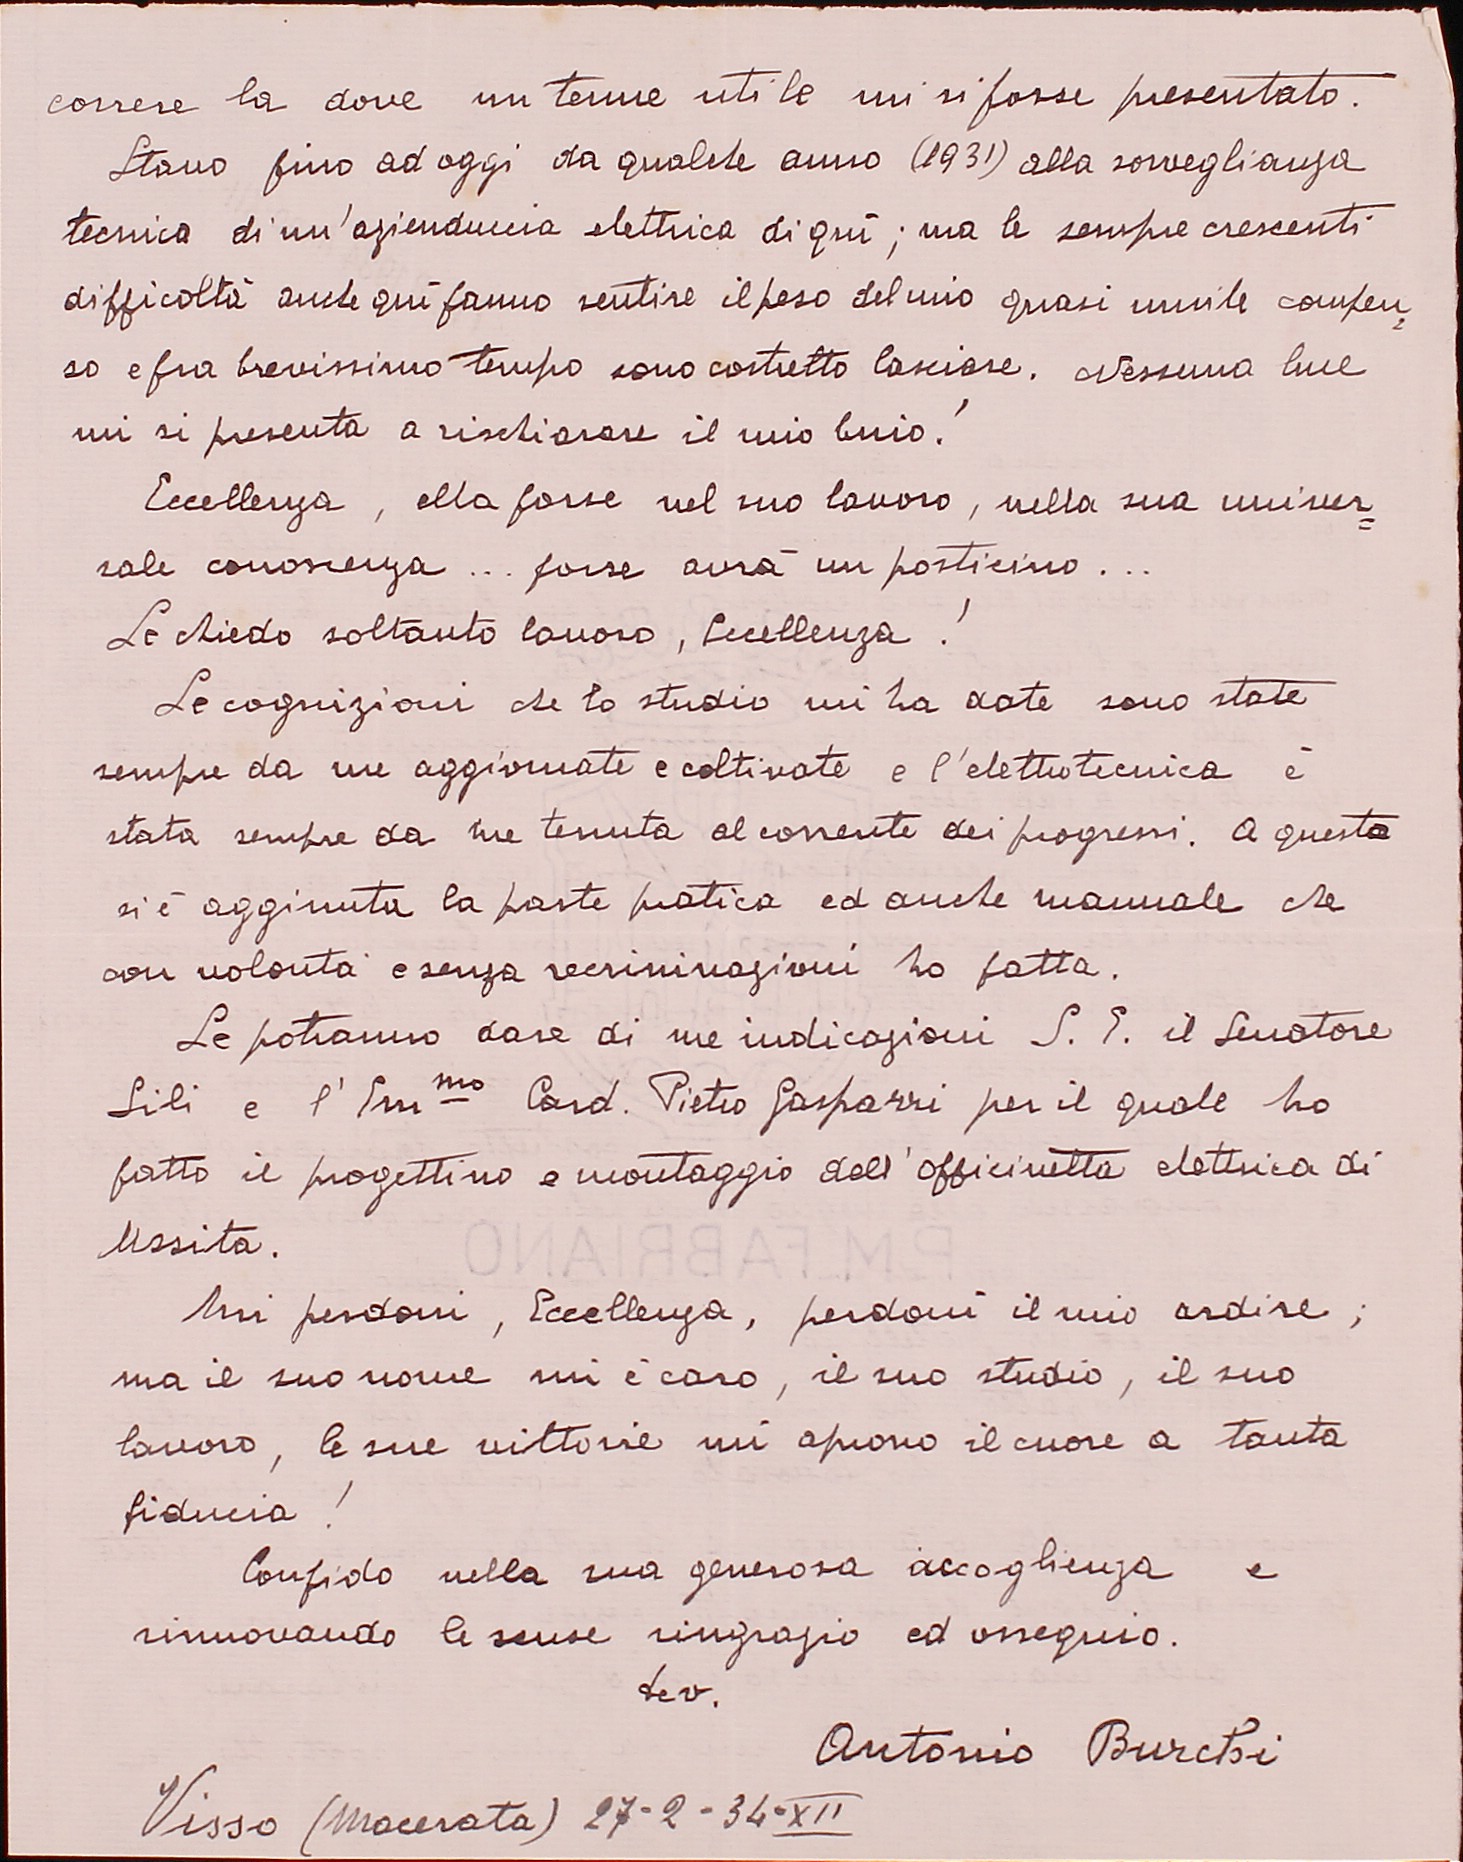 correre la dove un tenue utile mi si fosse presentato.
Stavo fino ad oggi da qualche anno (1931) alla sorveglianza
tecnica di un'azienduccia elettrica di quì; ma le sempre crescenti
difficoltà anche quì fanno sentire il peso del mio quasi umile compen-
so e fra brevissimo tempo sono costretto lasciare. Nessuna luce
mi si presenta a rischiarare il mio buio!
Eccellenza, ella forse nel suo lavoro, nella sua univer=
sale conoscenza ... forse avrà un posticino ...
Le chiedo soltanto lavoro, Eccellenza!
Le cognizioni che lo studio mi ha date sono state
sempre da me aggiornate e coltivate e l'elettrotecnica è
stata sempre da me tenuta al corrente dei progressi. A questa
si è aggiunta la parte pratica ed anche manuale che
con volontà e senza recriminazioni ho fatta.
Le potranno dare di me indicazioni S. E. il Senatore
Sili e l'Em mo Card. Pietro Gasparri per il quale ho
fatto il progettino e montaggio dell'officinetta elettrica di
Ussita.
P.M. FABRIANO
Mi perdoni, Eccellenza, perdoni il mio ardire;
ma il suo nome mi è caro, il suo studio, il suo
lavoro, le sue vittorie mi aprono il cuore a tanta
fiducia!
Confido nella sua generosa accoglienza e
rinnovando le scuse ringrazio ed ossequio.
dev.
Antonio Burchi
Visso (Macerata) 27-2-34-XII